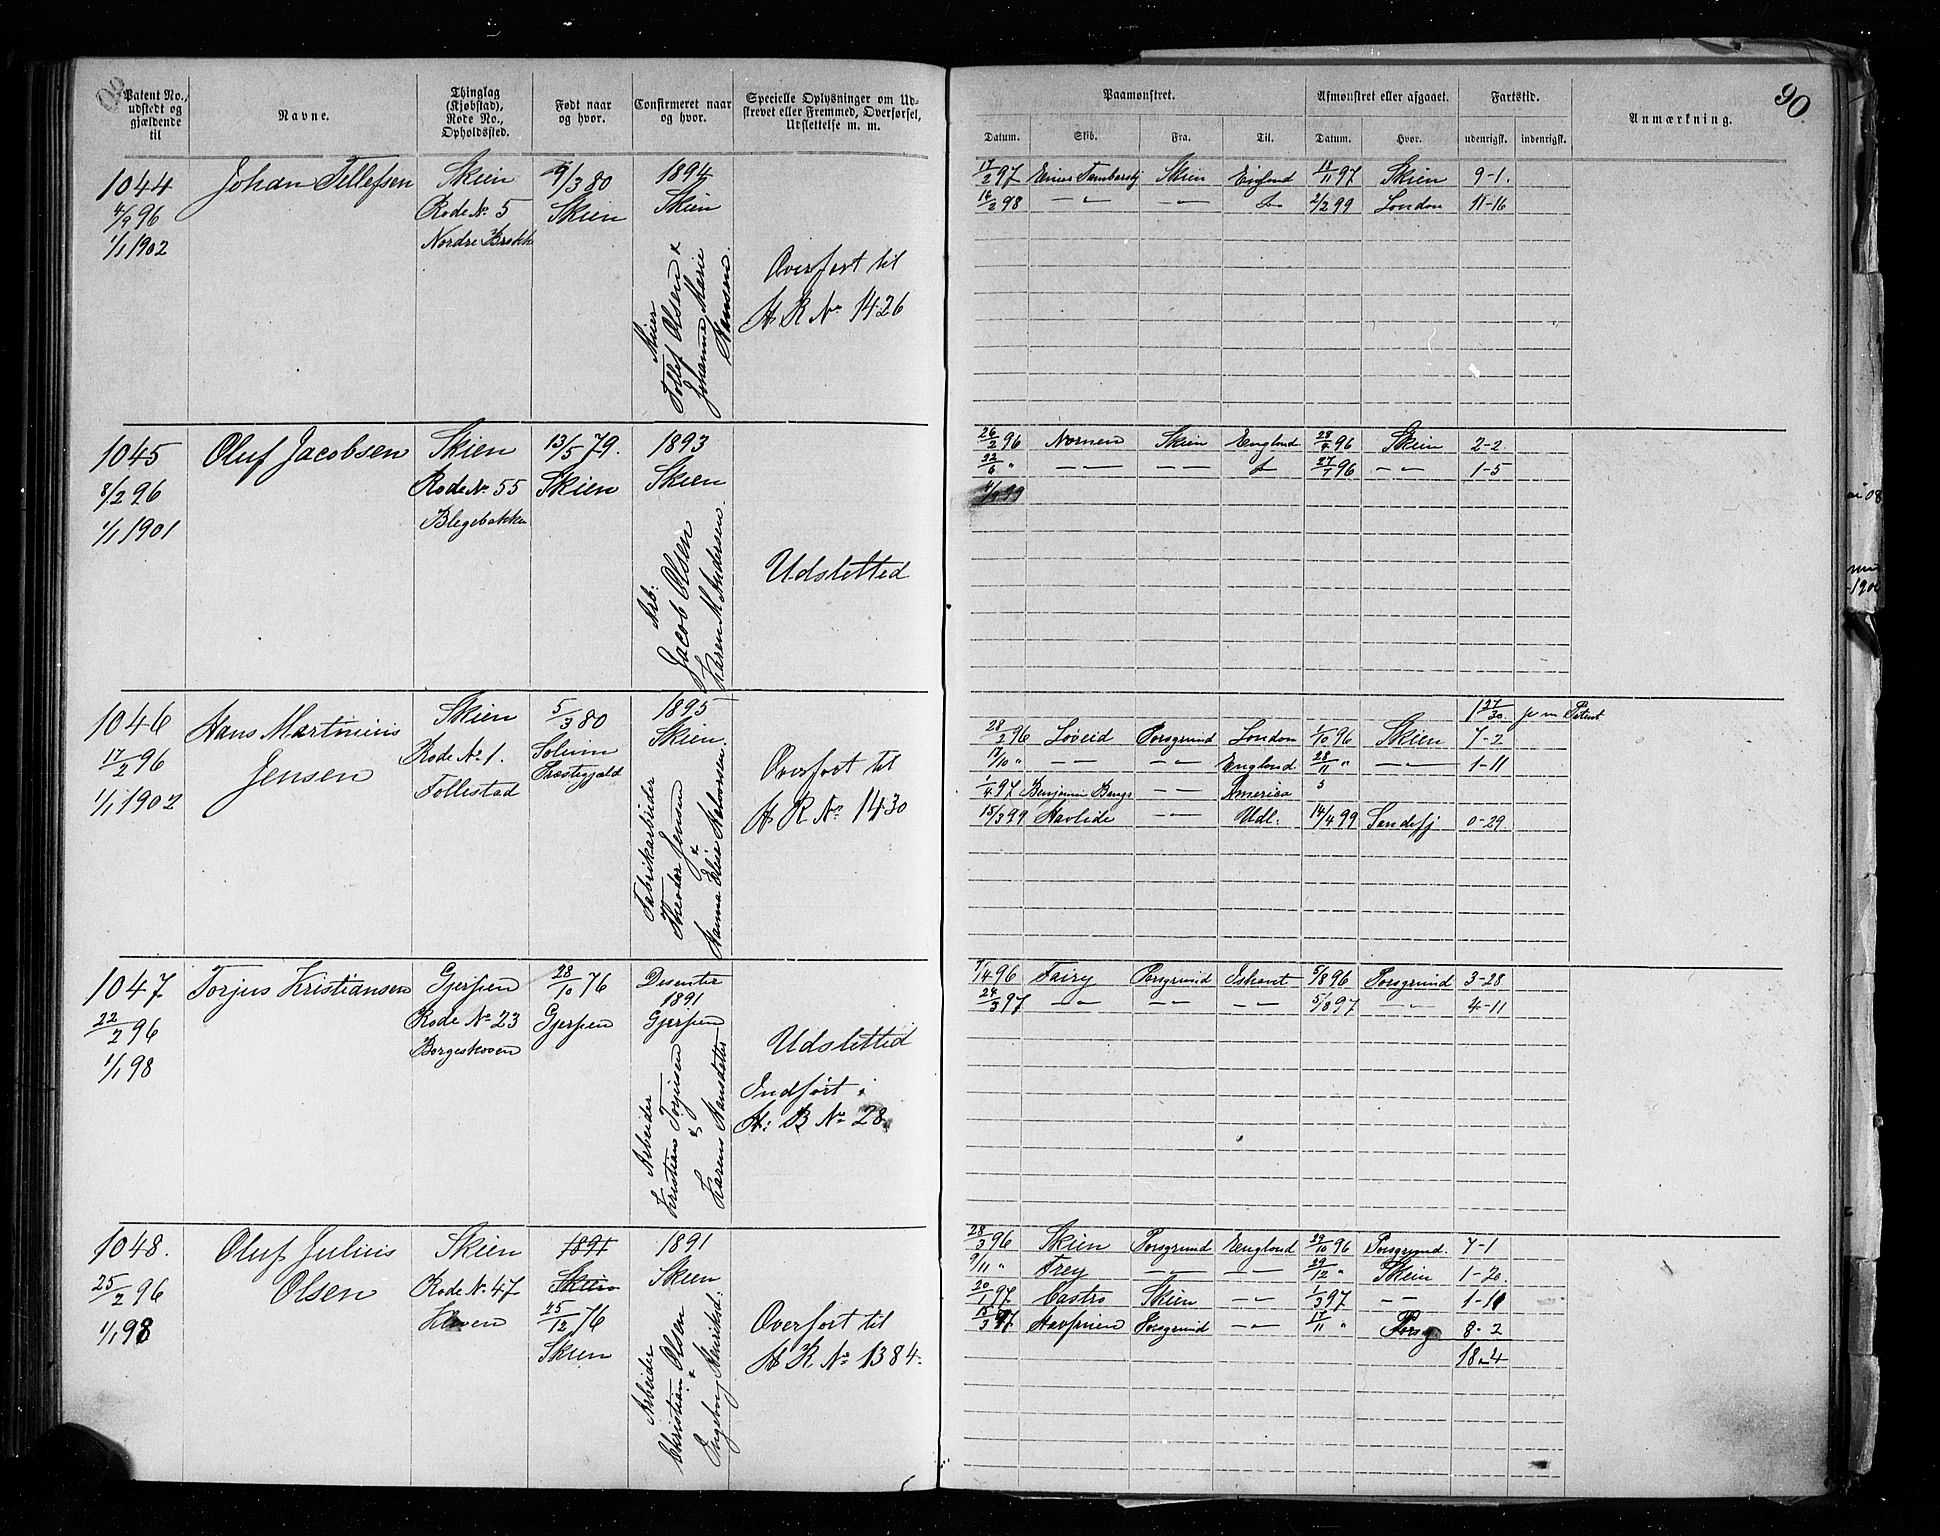 90
Patent No., udstedt og gjældende til
Navne.
Thinglag (Kjøbstad), Rode No., Opholdssted.
Født naar og hvor.
Confirmeret naar og hvor.
Specielle Oplysninger om Udstrevet eller Fremmed, Overførsel, Udslettelse m. m.
Paamønstret.
Afmønstret eller afgaaet.
Fartstid.
Anmærkning.
Datum.
Skib.
Fra.
Til.
Datum.
Hvor.
udenrigsk.
indenrigsk.
1044
4/9 96
1/1 1902
Johan Tellefsen
Skien
Rode No. 5
Nordre Brekke
9/3 80
Skien
1894
Skien
Tollef Olsen &
Johanne Marie
Hansen
Overført til
H R No 1426
17/2 97 Skien England 18/11 97 Skien 9-1.
16/2 98 — " — — " — 2/2 99 London 11-16
1045
8/2 96
1/1 1901
Oluf Jacobsen
Skien
Rode No. 55
Blegebakken
13/5 79.
Skien
1893
Skien
Arb:
Jacob Olsen
Karen M. Andersen
Udsletted
26/2 96 Nornen Skien England 28/4 96 Skien 2-2
22/6 " — " — — " — 27/7 96 — " — 1-5
99
1046
17/2 96
1/1 1902
Hans Martinius
Jensen
Skien
Rode No. 1.
Follestad
5/3 80
Solum
Præstegjæld
1895
Skien.
Fabrikarbeider
Theodor Jensen
&
Hanna Elise Halvorsen
Overført til
H R No 1430
1 27/30 p m Patent
28/2 96 Løveid Porsgrund London 1/10 96 Skien 7-2
17/10 " — " — — " — England. 28/11 " — " — 1-11
1/4 97 Benjamin Bangs — " — America
15/3 99 Havlide — " — Udl. 14/4 99 Sandefj 0-29
1047
22/2 96
1/1 98
Torjus Kristiansen
Gjerpen
Rode No 23
Borgeskoven
28/10 76
Gjerpen
Desenter
1891
Gjerpen
Arbeider
Kristian Torjusen
&
Karen Hansdatter
Udsletted
Indført i
H: B No 28
9/4 96 Fairy Porsgrund Ishavet 5/8 96 Porsgrund 3-28
24/3 97 — " — — " — — " — 5/8 97 — " — 4-11
1048.
25/2 96
1/1 98
Oluf Julius
Olsen
Skien
Rode No. 47
Haven
1891
Skien
25/12 76
Skien
1891
Skien
Arbeider
Christian Olsen
&
Ingeborg Henriksd.
Overført til
H R No 1384.
28/3 96 Skien Porsgrund England 29/10 96 Porsgrund. 7-1
9/11 " Frey — " — — " — 29/12 " Skien 1-20
20/1 97 Castro Skien — " — 1/3 97 — " — 1-11
15/3 97 Havfruen Porsgrund — " — 17/11 " Porsg. 8-2
18-4